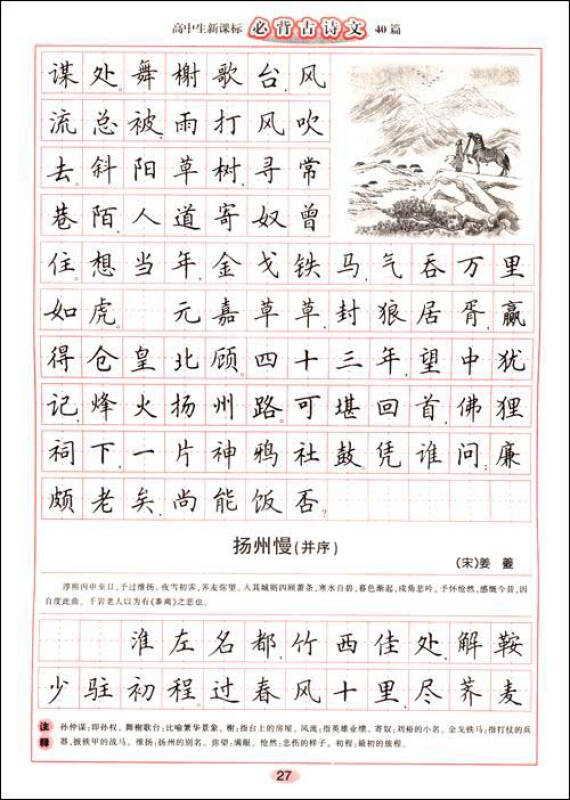 高中生新课标 必背古诗文 40篇
谋处,舞榭歌台,风
流总被,雨打风吹
去。斜阳草树,寻常
巷陌,人道寄奴曾
住。想当年,金戈铁马,气吞万里
如虎。 元嘉草草,封狼居胥,赢
得仓皇北顾。四十三年,望中犹
记,烽火扬州路。可堪回首,佛狸
祠下,一片神鸦社鼓。凭谁问:廉
颇老矣,尚能饭否?
扬州慢(并序)
(宋)姜 夔
淳熙丙申至日,予过维扬。夜雪初霁,荠麦弥望。入其城则四顾萧条,寒水自碧,暮色渐起,戍角悲吟。予怀怆然,感慨今昔,因
自度此曲。千岩老人以为有《黍离》之悲也。
淮左名都,竹西佳处,解鞍
少驻初程。过春风十里,尽荠麦
注释 孙仲谋:即孙权。舞榭歌台:比喻繁华景象。榭:指台上的房屋。风流:指英雄业绩。寄奴:刘裕的小名。金戈铁马:指打仗的兵
器,披铁甲的战马。维扬:扬州的别名。弥望:满眼。怆然:悲伤的样子。初程:最初的旅程。
27